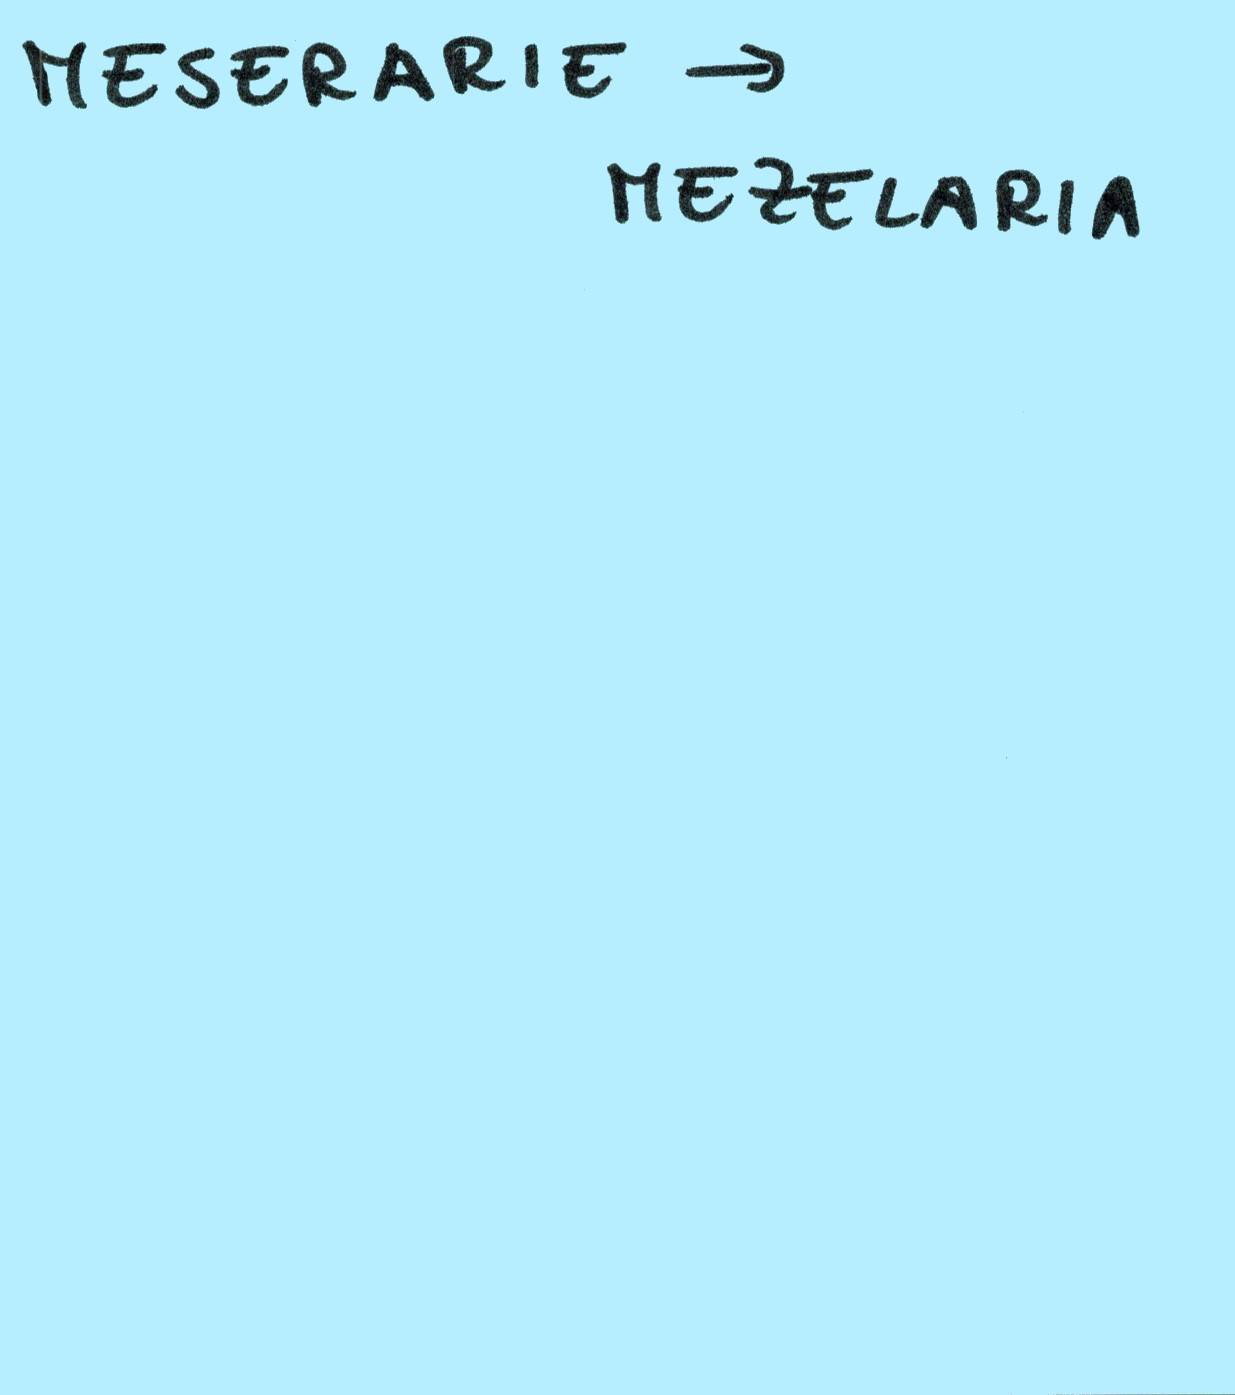 MESERARIE →
MEZELARIA